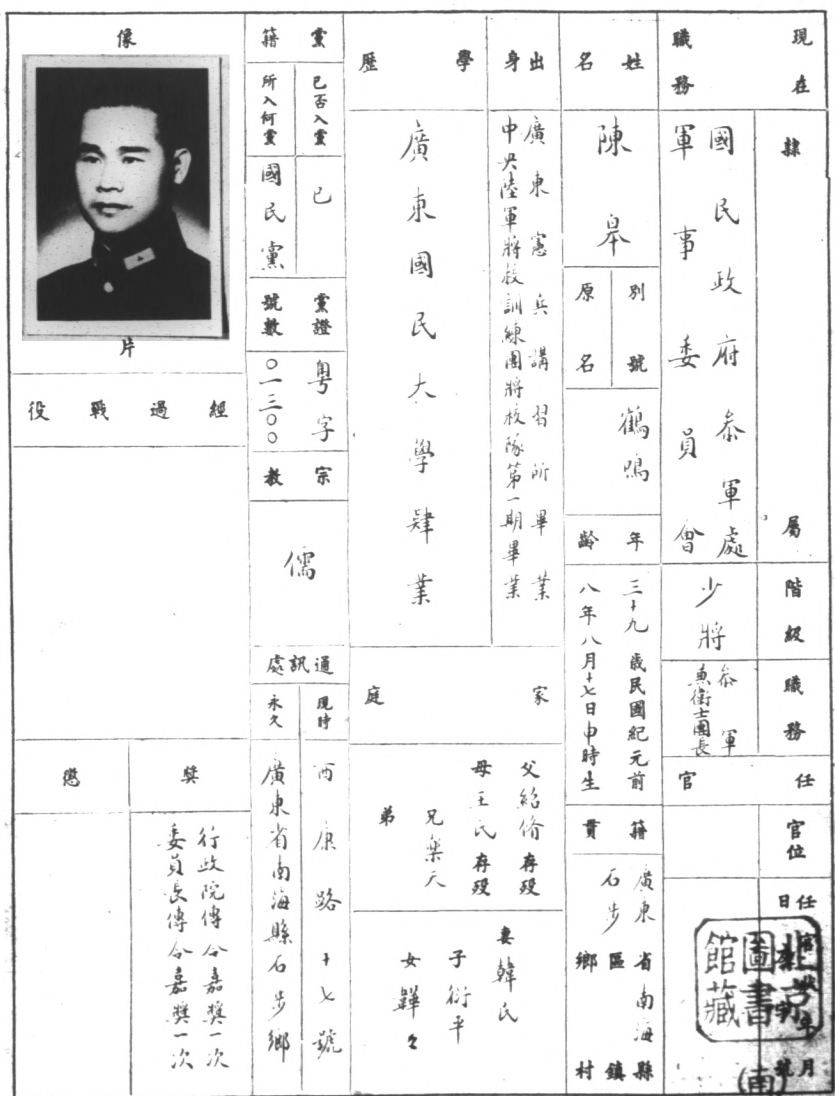 現在職務
隸屬
國民政府参軍處
軍事委員會
階級
少將
職務
参軍
兼衛士團長
任官
官位
任官
年月日
姓名
陳皋
別號
原名
鶴鳴
年齡
三十九歲民國紀元前
八年八月十七日申時生
籍貫
廣東省南海縣
石步
區鎮
鄉村
出身
廣東憲兵講習所畢業
中央陸軍將校訓練團將校隊第一期畢業
學歷
廣東國民大學肄業
家庭
父紹脩存殁
母王氏存殁
兄樂天
弟
妻韓氏
子衍平
女韡々
黨籍
已否入黨
已
所入何黨
國民黨
黨證號數
粵字
〇一三〇〇
宗教
儒
通訊處
現時
西康路十七號
永久
廣東省南海縣石步鄉
像片
經過戰役
獎
行政院傳令嘉獎一次
委員長傳令嘉獎一次
懲
北京
圖書
館藏
(南)